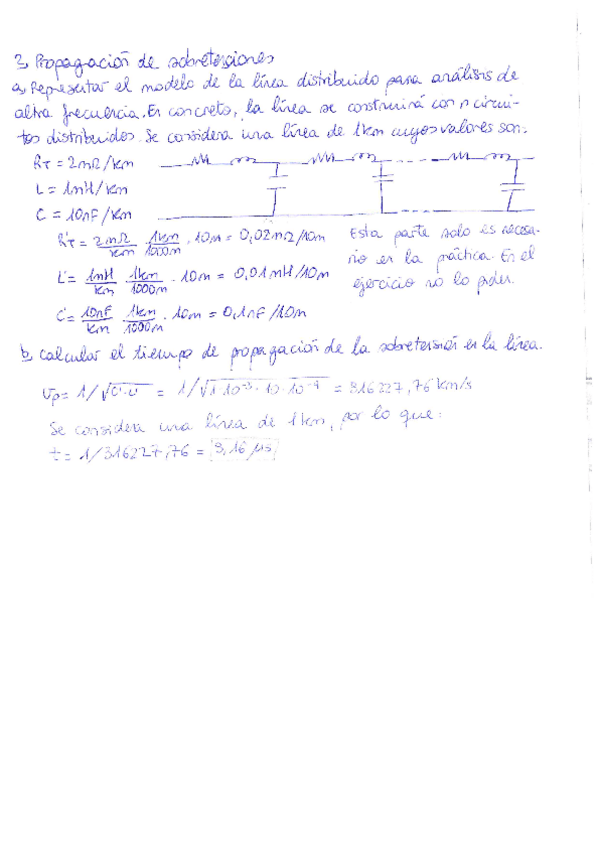 3, Propagación de sobretensiones
a, Representar el modelo de la línea distribuido para análisis de
alta frecuencia. En concreto, la línea se construirá con n circui-
tos distribuidos. Se considera una línea de 1km cuyos valores son:
RT = 2mΩ/km
L = 1mH/km
C = 10nF/km
R'T = 2mΩ/km · 1km/1000m · 10m = 0,02mΩ/10m
L' = 1mH/km · 1km/1000m · 10m = 0,01mH/10m
C' = 10nF/km · 1km/1000m · 10m = 0,1nF/10m
Esta parte solo es necesa-
rio en la práctica. En el
ejercicio no lo piden.
b, Calcular el tiempo de propagación de la sobretensión en la línea.
Vp = 1/√C'·L' = 1/√1·10⁻³·10·10⁻⁹ = 316227,76 km/s
Se considera una línea de 1km, por lo que:
t = 1/316227,76 = 3,16 μs